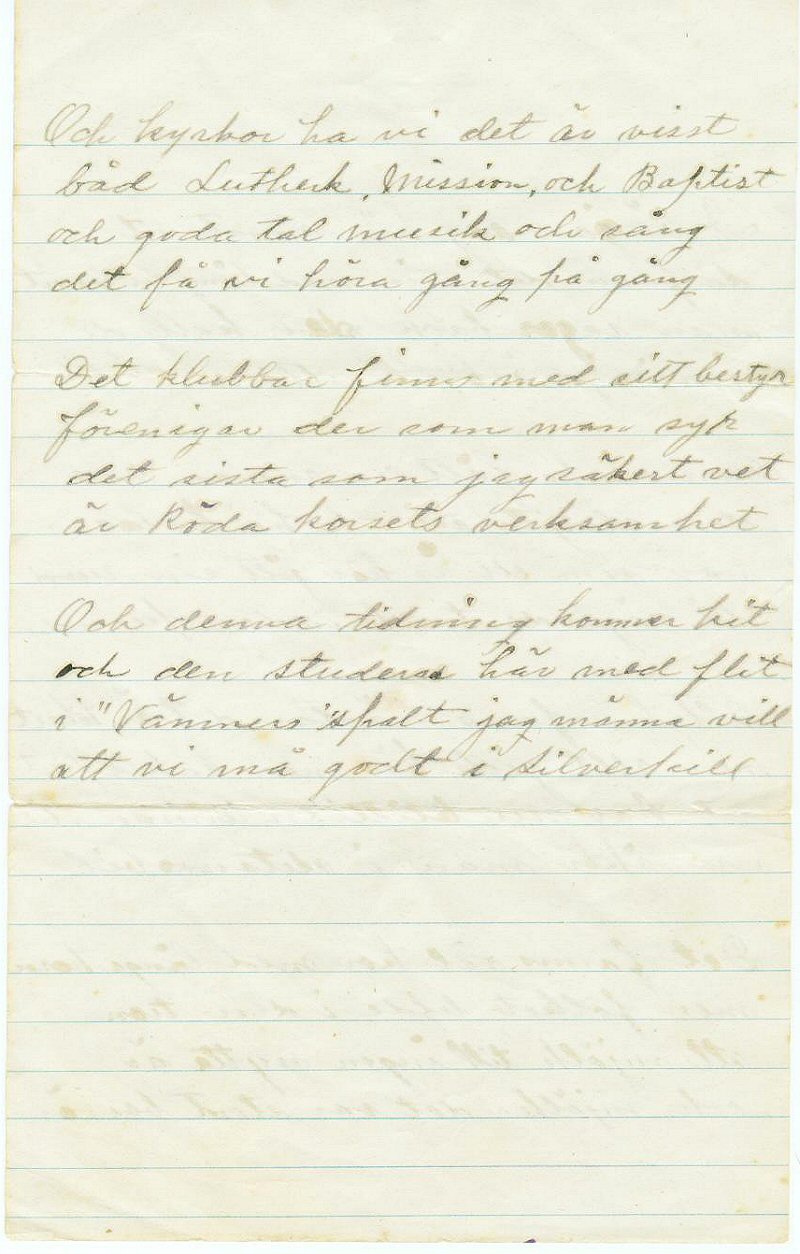 Och kyrkor ha vi det är visst
båd Luthersk, Mission, och Baptist
och goda tal musik och sång
det få vi höra gång på gång
Det klubbar finns med sitt bestyr
föreningar der som man syr
det sista som jag säkert vet
är Röda korsets verksamhet
Och denna tidning kommer hit
och den studeras här med flit
i "Vänners" spalt jag nämna vill
att vi må godt i Silverhill